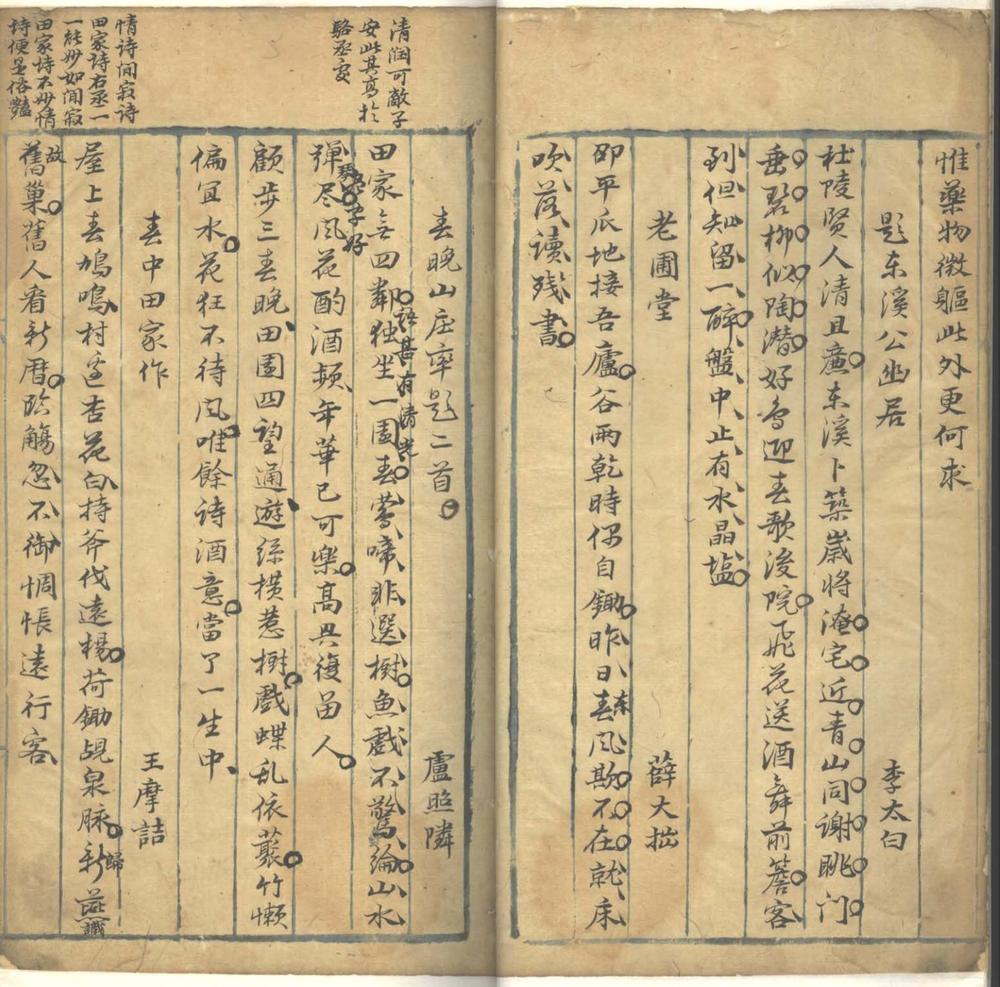 惟藥物微軀此外更何求
题东溪公幽居 李太白
杜陵賢人清且亷东溪卜築嵗将淹宅近青山同谢眺门
垂碧柳似陶潜好鸟迎春歌後院飛花送酒舞前簷客
到但知留一醉盤中止有水晶塩
老圃堂 薛大拙
邵平瓜地接吾廬谷雨乾時偶自鋤昨日春风欺不在就床
东
吹落读残書
清润可敵子
安此其高於
駱丞處
春晚山庄率题二首 盧照隣
语甚有清光
田家無四鄰独坐一園春鶯啼非選樹魚戲不驚綸山水
字好
弹尽风花酌酒頻年華已可樂高興復留人
顧步三春晚田園四望通遊絲横惹樹戲蝶乱依藂竹懒
偏宜水花狂不待风唯餘诗酒意當了一生中
春中田家作 王摩詰
情诗闺寂诗
田家诗右丞一
一能妙如闺寂
田家诗不妙情
诗便是俗豔
屋上春鳩鳴村邊杏花白持斧伐遠楊荷鋤覘泉脉新燕識
歸
故
舊巢舊人看新曆臨觴忽不御惆悵遠行客